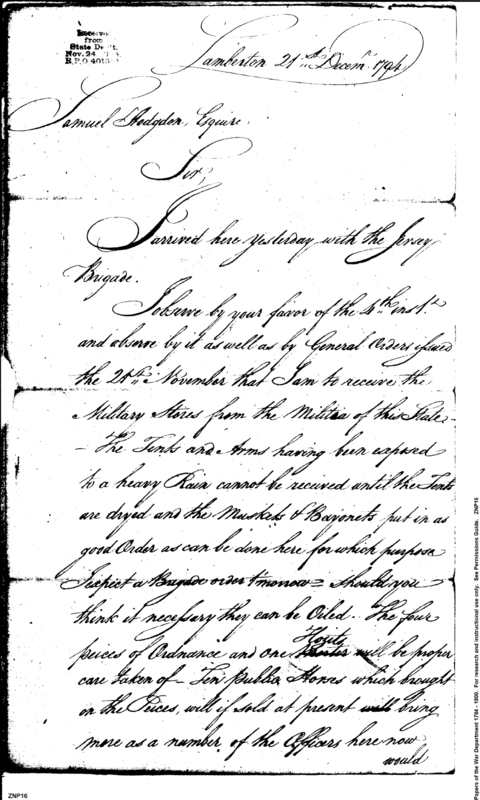 Received
from
State Dept.
Nov. 24
R.P.O 4013
Lamberton 21st Decemr. 1794
Samuel Hodgdon, Esquire
Sir,
I arrived here yesterday with the Jersey
Brigade.
I observe by your favor of the 4th inst.
and observe by it as well as by General Orders issued
the 25th November that I am to receive the
Military Stores from the Militia of this State -
- The Tents and Arms having been exposed
to a heavy Rain cannot be received until the Tents
are dryed and the Muskets & Bayonets put in as
good Order as can be done here for which purpose
I expect a Brigade order tmorrow = Should you
think it necessary they can be Oiled - The four
peices of Ordnance and one Howitz will be proper
care taken of - Ten Public Horses which brought
on the Peices, will if sold at present will bring
more as a number of the Officers here now
would
ZNP16
Papers of the War Department 1784 - 1800. For research and instructional use only. See Permissions Guide. ZNP16